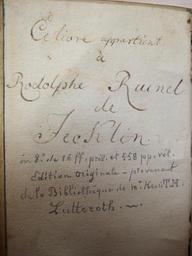 Ce livre appartient
à
Rodolphe Ruinel
de
Jecklin
in 8º de 16 ff. prél. et 558 pp. vél.
Edition originale - provenant
de la Bibliothèque de Mr. Henri
Lutteroth.